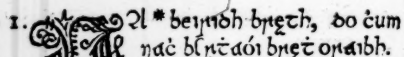 1. NA * beiridh breth, do ċum
naċ bérṫaói bret oraibh.